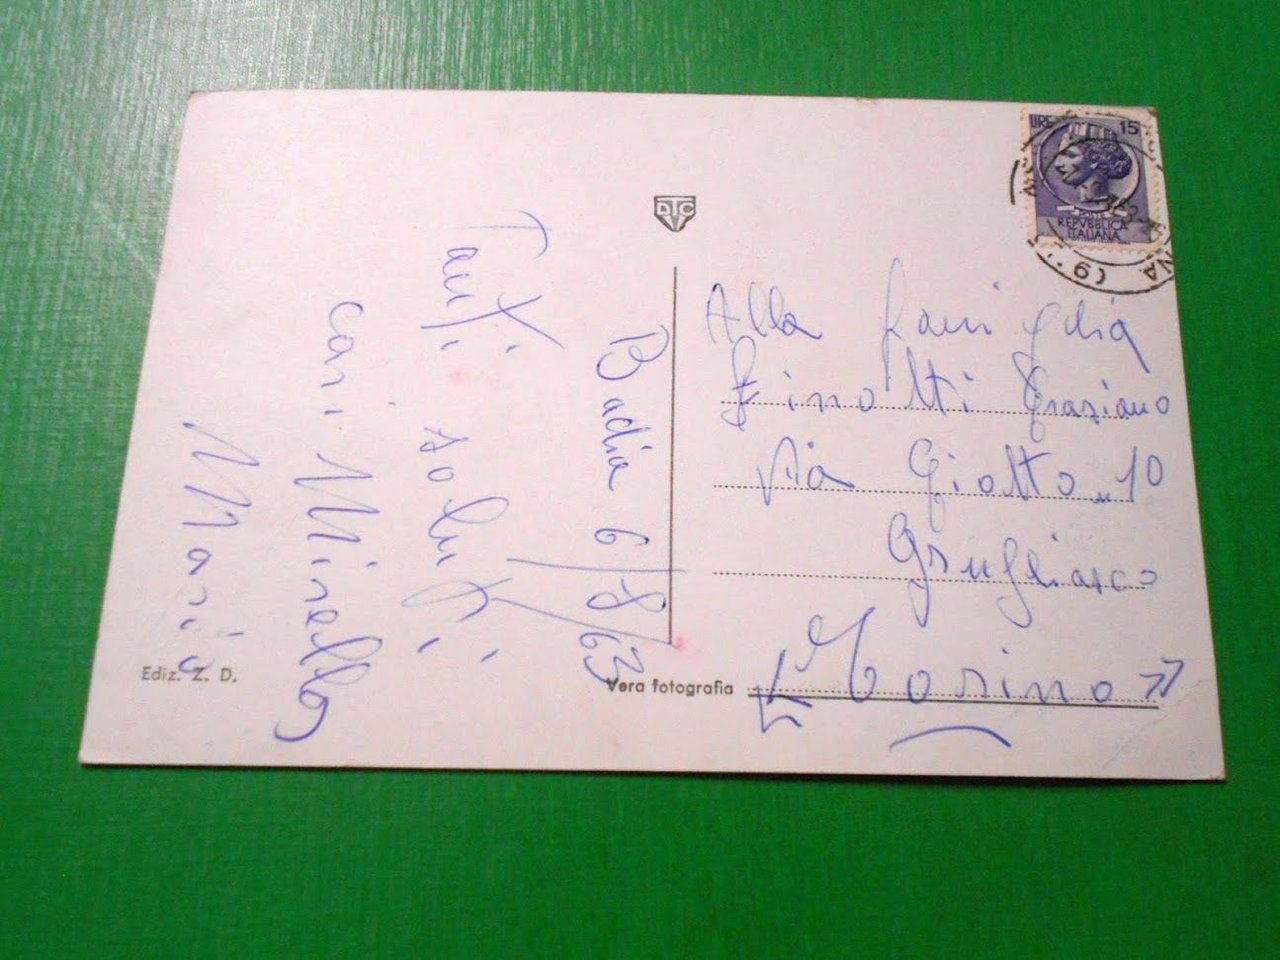 Badia 6/8/63
Tanti saluti
cari Mirella
Mario
Ediz. Z. D.
DTC
Vera fotografia
LIRE 15
POSTE
REPVBBLICA
ITALIANA
Alla famiglia
Finotti Graziano
Via Giotto n 10
Grugliasco
"Torino"